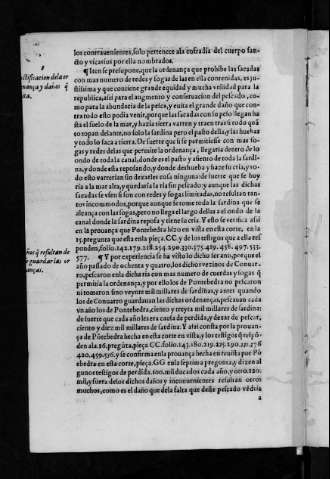 los contrauenientes, solo pertenece ala cofradia del cuerpo san-
cto y vicarios por ella nombrados.
¶ Iten se presupone, que la ordenança que prohibe las sacadas
con mas numero de redes y sogas de las en ella contenidas, es ju-
stissima y que contiene grande equidad y mucha vtilidad para la
republica, assi para el augmento y conseruacion del pescado, co-
mo para la abundácia de la pesca, y euita el grande daño que con-
tra todo esto podia venir, porque las sacadas con su peso llegan ha
sta el suelo de la mar, y hazia tierra varren y traen tras si todo quã
to topan delante, no solo la sardina pero el pasto della, y las hueuas
y todo lo saca a tierra. De suerte que si se permitiesse con mas so-
gas y redes delas que permite la ordenança, llegaria dentro de lo
ondo de toda la canal, donde es el pasto y assiento de toda la sardi-
na, y donde esta reposando, y donde deshueba y haze su cria, y to-
do esto varrerian sin dexarles cosa ninguna de suerte que se huy
ria ala mar alta, y quedaria la ria sin pescado y aunque las dichas
sacadas se vsen si son con redes y sogas limitadas, no resultan tan-
tos inconuenientes, porque aunque se tome toda la sardina que se
alcança con las sogas, pero no llega el largo dellas a el ondo de la
canal donde la sardina reposa y tiene la cria. Y esto se verifica assi
en la prouança que Ponteuedra hizo en villa en esta corte, en la
15. pregunta que esta en la pieça, CC. y de los testigos que a ella res
ponden, folio. 142. 179. 218. 254. 290. 330. 375. 419. 458. 497. 533.
577. ¶ Y por experiencia se ha visto lo dicho ser assi, porque el
año passado de ochenta y quatro, los dichos vezinos de Conuar-
ro, pescaron en la dicha ria con mas numero de cuerdas y sogas que
permitia la ordenança, y por ellos los de Ponteuedra no pescaron
ni tomaron sino veynte mil millares de sardinas, y antes quando
los de Conuarro guardauan las dichas ordenanças, pescauan cada
vn año los de Ponteuedra, ciento y treynta mil millares de sardinas
de suerte que cada año les era causa de perdida, y dexar de pescar,
ciento y diez mil millares de sardina: Y assi consta por la prouan-
ça de Põteuedra hecha en esta corte en vista, y los testigos q̃ respõ-
den ala. 16. pregũta, pieça CC. folio. 143. 180. 219. 255. 290. 331. 376
420. 459. 536. y se confirma en la prouança hecha en reuista por Põ
teuedra en esta corte, pieça. GG en la septima pregunta, y dizen al
gunos testigos de perdida. 100. mil ducados cada año, y otro 120.
mil, y fuera delos dichos daños y inconuenientes resultan otros
muchos, como es el daño que dela falta que desse pescado vẽdria
a